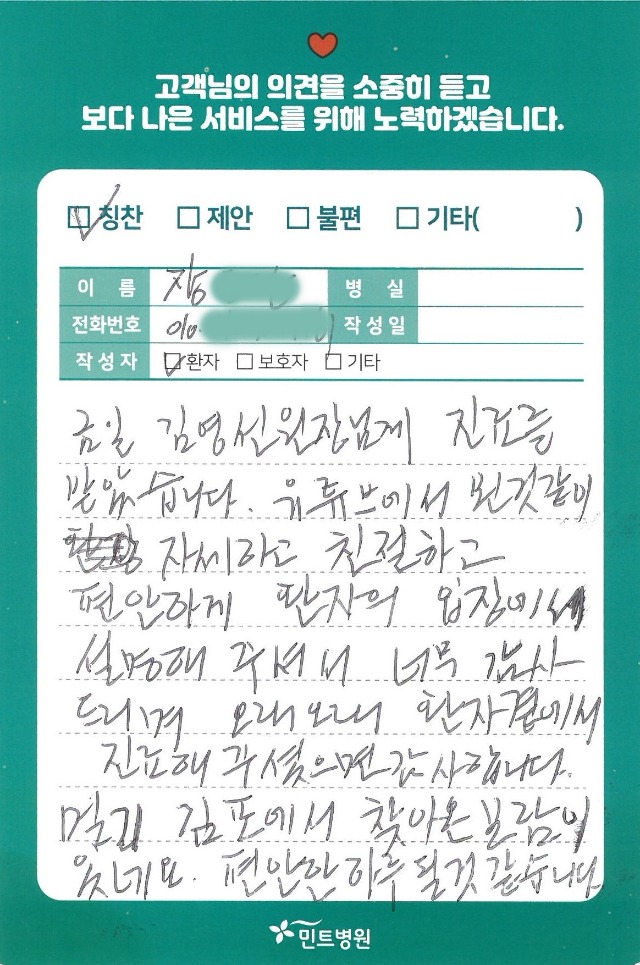 고객님의 의견을 소중히 듣고
보다 나은 서비스를 위해 노력하겠습니다.
칭찬 제안 불편 기타( )
이 름 장 병 실
전화번호 010. 작성일
작성자 환자 보호자 기타
금일 김영선원장님께 진료를
받았습니다. 유튜브에서 본것같이
자세하고 친절하고
편안하게 환자의 입장에서
설명해 주셔서 너무 감사
드리며 오래오래 환자곁에서
진료해 주셨으면 감사합니다.
멀리 김포에서 찾아온 보람이
있네요. 편안한 하루 될것 같습니다.
민트병원